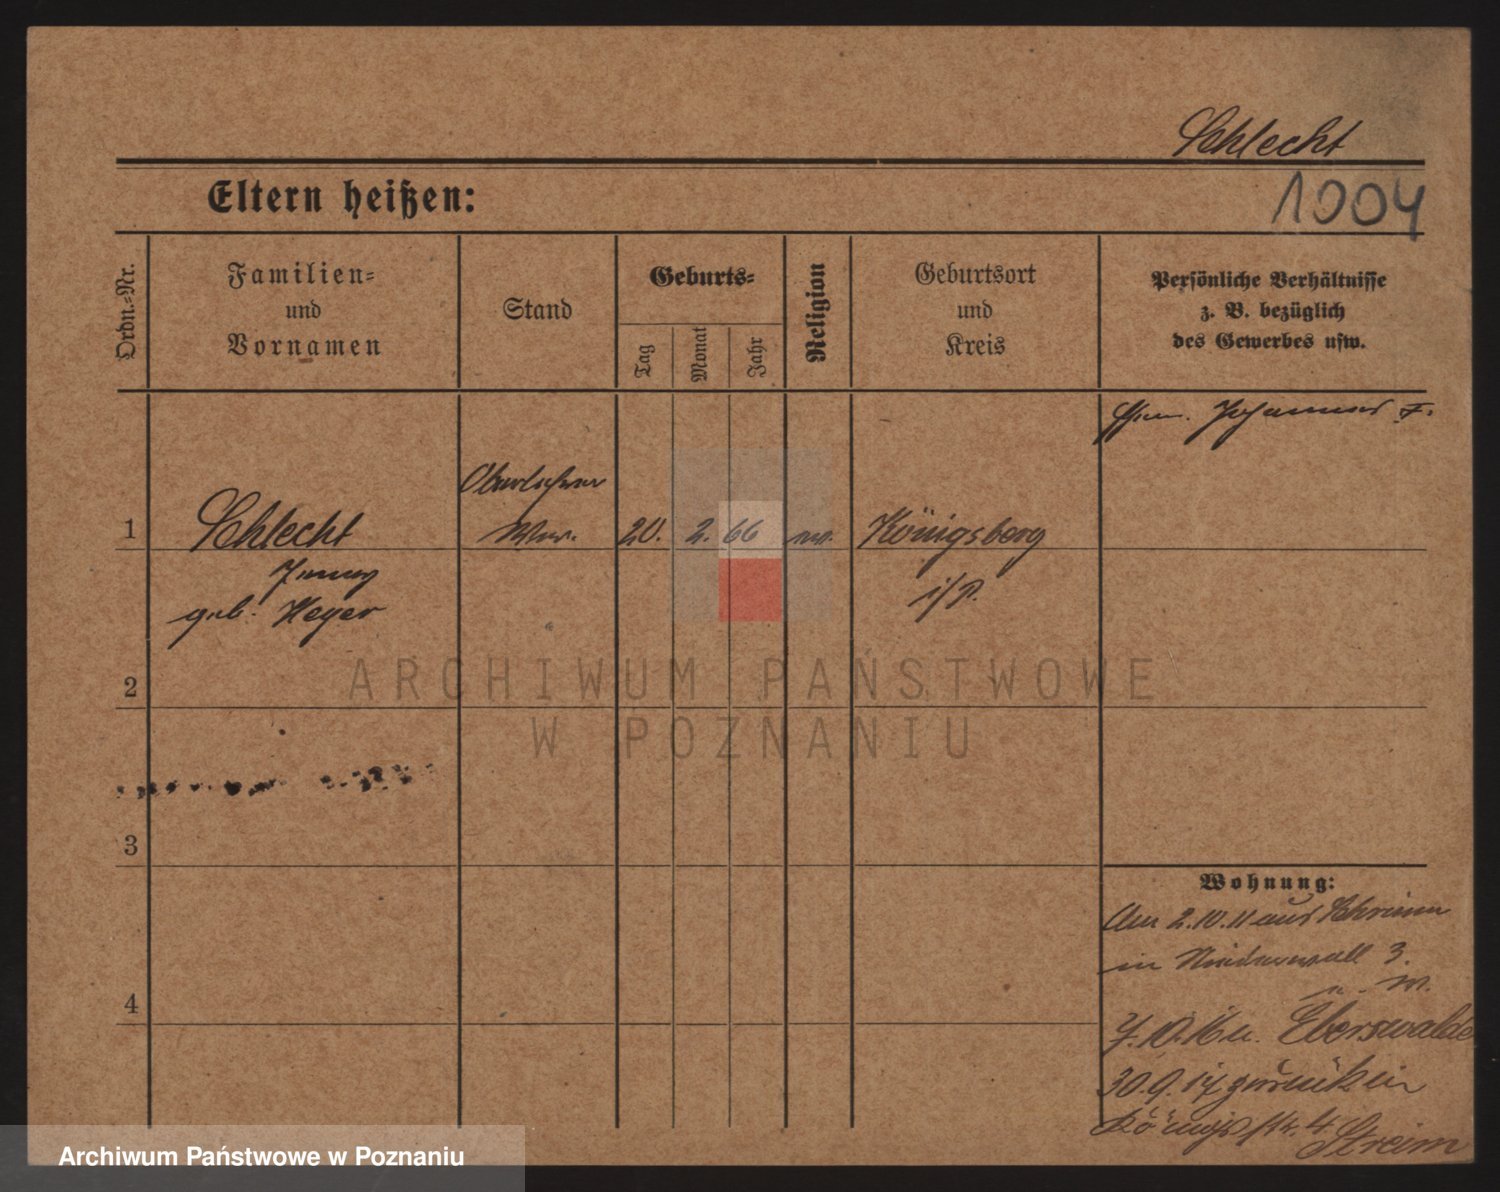 Schlecht
1004
Eltern heißen:
Ordn.=Nr.
Familien=
und
Vornamen
Stand
Geburts=
Tag
Monat
Jahr
Religion
Geburtsort
und
Kreis
Persönliche Verhältnisse
z. B. bezüglich
des Gewerbes usw.
Johannes F.
Oberlehrer
1 Schlecht Wwe. 20. 2. 66 Königsberg
Jenny i/P.
geb. Heyer
2
3
4
Wohnung:
Am 2.10.11 aus Schrimm
in Niederwall 3.
n. W.
7.10.16 n. Eberswalde
30.9.17 zurück in
Königstr. 4
ARCHIWUM PAŃSTWOWE
W POZNANIU
Archiwum Państwowe w Poznaniu